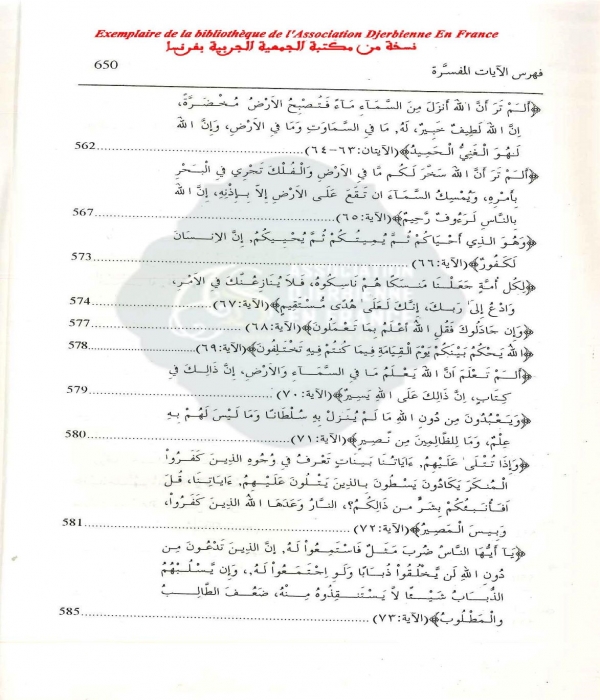 Exemplaire de la bibliothèque de l'Association Djerbienne En France
نسخة من مكتبة الجمعية الجربية بفرنسا
فهرس الآيات المفسَّرة 650
﴿أَلَمْ تَرَ أَنَّ اللهَ أَنزَلَ مِنَ السَّمَآءِ مَآءً فَتُصْبِحُ الاَرْضُ مُخْضَرَّةً،
إِنَّ اللهَ لَطِيفٌ خَبِيرٌ، لَهُ, مَا فِي السَّمَاوَتِ وَمَا فِي الاَرْضِ، وَإِنَّ اللهَ
لَهُوَ الْغَنِيُّ الْحَمِيدُ﴾(الآيتان:٦٣-٦٤) 562
﴿أَلَمْ تَرَ أَنَّ اللهَ سَخَّرَ لَكُم مَّا فِي الاَرْضِ وَالْفُلْكَ تَجْرِي فِي الْبَحْرِ
بِأَمْرِهِ، وَيُمْسِكُ السَّمَآءَ ان تَقَعَ عَلَى الاَرْضِ إِلاَّ بِإِذْنِهِ، إِنَّ اللهَ
بِالنَّاسِ لَرَءُوفٌ رَّحِيمٌ﴾(الآية:٦٥) 567
﴿وَهُوَ الذِي أَحْيَاكُمْ ثُمَّ يُمِيتُكُمْ ثُمَّ يُحْيِيكُمُ, إِنَّ الاِنسَانَ
لَكَفُورٌ﴾(الآية:٦٦) 573
﴿لِكُلِّ أُمَّةٍ جَعَلْنَا مَنسَكًا هُمْ نَاسِكُوهُ، فَلاَ يُنَازِعُنَّكَ فِي الاَمْرِ،
وَادْعُ إِلَىٰ رَبِّكَ، إِنَّكَ لَعَلَىٰ هُدًى مُّسْتَقِيمٍ﴾(الآية:٦٧) 574
﴿وَإِن جَادَلُوكَ فَقُلِ اللهُ أَعْلَمُ بِمَا تَعْمَلُونَ﴾(الآية:٦٨) 577
﴿اللهُ يَحْكُمُ بَيْنَكُمْ يَوْمَ الْقِيَامَةِ فِيمَا كُنتُمْ فِيهِ تَخْتَلِفُونَ﴾(الآية:٦٩) 578
﴿أَلَمْ تَعْلَمَ اَنَّ اللهَ يَعْلَمُ مَا فِي السَّمَآءِ وَالاَرْضِ، إِنَّ ذَالِكَ فِي
كِتَابٍ، إِنَّ ذَالِكَ عَلَى اللهِ يَسِيرٌ﴾(الآية:٧٠) 579
﴿وَيَعْبُدُونَ مِن دُونِ اللهِ مَا لَمْ يُنَزِّلْ بِهِ سُلْطَانًا وَمَا لَيْسَ لَهُمْ بِهِ
عِلْمٌ، وَمَا لِلظَّالِمِينَ مِن نَّصِيرٍ﴾(الآية:٧١) 580
﴿وَإِذَا تُتْلَىٰ عَلَيْهِمُ, ءَايَاتُنَا بَيِّنَاتٍ تَعْرِفُ فِي وُجُوهِ الذِينَ كَفَرُواْ
الْمُنكَرَ يَكَادُونَ يَسْطُونَ بِالذِينَ يَتْلُونَ عَلَيْهِمُ, ءَايَاتِنَا، قُلَ
اَفَأُنَبِّئُكُمْ بِشَرٍّ مِّن ذَالِكُمْ؟، النَّارُ وَعَدَهَا اللهُ الذِينَ كَفَرُواْ،
وَبِيسَ الْمَصِيرُ﴾(الآية:٧٢) 581
﴿يَا أَيُّهَا النَّاسُ ضُرِبَ مَثَلٌ فَاسْتَمِعُواْ لَهُ, إِنَّ الذِينَ تَدْعُونَ مِن
دُونِ اللهِ لَنْ يَّخْلُقُواْ ذُبَابًا وَلَوِ اجْتَمَعُواْ لَهُ,، وَإِن يَّسْلُبْهُمُ
الذُّبَابُ شَيْئًا لاَّ يَسْتَنقِذُوهُ مِنْهُ، ضَعُفَ الطَّالِبُ
وَالْمَطْلُوبُ﴾(الآية:٧٣) 585